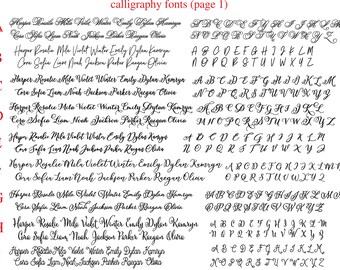 calligraphy fonts (page 1)
A
Harper Brooklin Mila Violet Winter Emily Dylan Kamryn
Cora Sofia Liam Noah Jackson Parker Reagan Olivia
A B C D E F G H I J K L M
N O P Q R S T U V W X Y Z
B
Harper Brooklin Mila Violet Winter Emily Dylan Kamryn
Cora Sofia Liam Noah Jackson Parker Reagan Olivia
A B C D E F G H I J K L M
N O P Q R S T U V W X Y Z
Harper Brooklin Mila Violet Winter Emily Dylan Kamryn
Cora Sofia Liam Noah Jackson Parker Reagan Olivia
A B C D E F G H I J K L M
N O P Q R S T U V W X Y Z
Harper Brooklin Mila Violet Winter Emily Dylan Kamryn
Cora Sofia Liam Noah Jackson Parker Reagan Olivia
A B C D E F G H I J K L M
N O P Q R S T U V W X Y Z
Harper Brooklin Mila Violet Winter Emily Dylan Kamryn
Cora Sofia Liam Noah Jackson Parker Reagan Olivia
A B C D E F G H I J K L M
N O P Q R S T U V W X Y Z
Harper Brooklin Mila Violet Winter Emily Dylan Kamryn
Cora Sofia Liam Noah Jackson Parker Reagan Olivia
A B C D E F G H I J K L M
N O P Q R S T U V W X Y Z
G
Harper Brooklin Mila Violet Winter Emily Dylan Kamryn
Cora Sofia Liam Noah Jackson Parker Reagan Olivia
A B C D E F G H I J K L M
N O P Q R S T U V W X Y Z
H
Harper Brooklin Mila Violet Winter Emily Dylan Kamryn
Cora Sofia Liam Noah Jackson Parker Reagan Olivia
A B C D E F G H I J K L M
N O P Q R S T U V W X Y Z
Harper Brooklin Mila Violet Winter Emily Dylan Kamryn
Cora Sofia Liam Noah Jackson Parker Reagan Olivia
A B C D E F G H I J K L M
N O P Q R S T U V W X Y Z